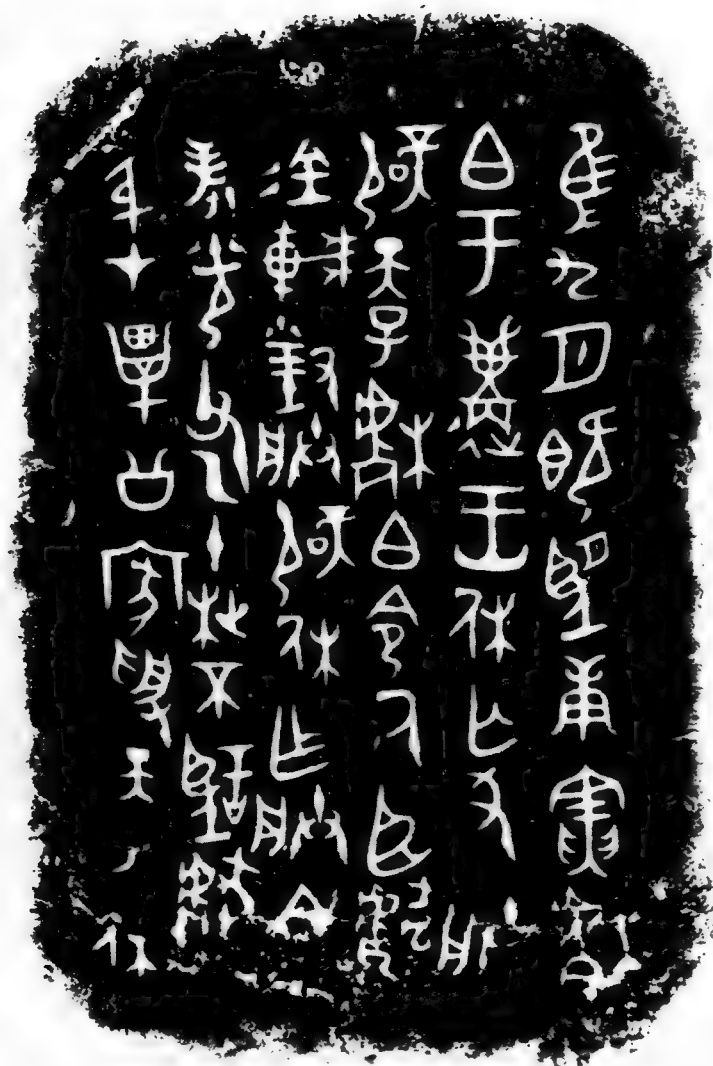 隹九月既望庚寅楷
白于遘王休亡尤朕
辟天子楷白令氒臣獻
金車對朕辟休乍朕文
考光父乙十枻不朢獻
身才畢公家受天子休